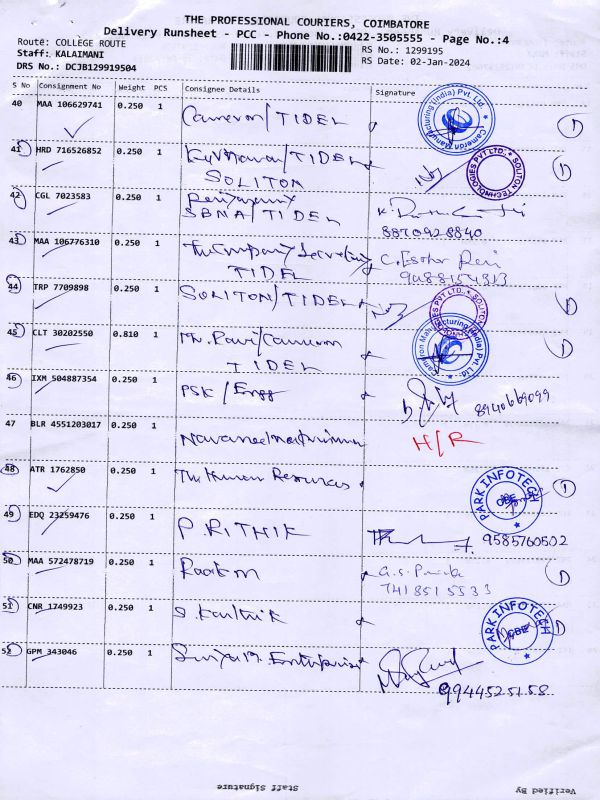 THE PROFESSIONAL COURIERS, COIMBATORE
Delivery Runsheet - PCC - Phone No.:0422-3505555 - Page No.:4
Route: COLLEGE ROUTE
Staff: KALAIMANI
DRS No.: DCJB129919504
RS No.: 1299195
RS Date: 02-Jan-2024
S No Consignment No Weight PCS Consignee Details Signature
40 MAA 106629741 0.250 1 Cameron/TIDEL
Cameron Manufacturing (India) Pvt. Ltd.
41 HRD 716526852 0.250 1 /TIDEL
SOLITON
SOLITON TECHNOLOGIES PVT LTD.
42 CGL 7023583 0.250 1
SBNA/TIDEL
8870928840
43 MAA 106776310 0.250 1 The Company Secretary
TIDEL
C. Esther Rani
44 TRP 7709898 0.250 1 SOLITON/TIDEL
SOLITON PVT LTD.
45 CLT 30202550 0.810 1 Mr. Ravi/Cameron
TIDEL
Cameron Manufacturing (India) Pvt. Ltd.
46 IXM 504887354 0.250 1 PSK/Engg
8940669099
47 BLR 4551203017 0.250 1
H/R
48 ATR 1762850 0.250 1 The Human Resources
PARK INFOTECH CBE
49 EDQ 23259476 0.250 1 P. RITHIK
9585760502
50 MAA 572478719 0.250 1
G.S.
7418515533
51 CNR 1749923 0.250 1 S. Karthik
PARK INFOTECH CBE
52 GPM 343046 0.250 1 Enterprises
9944525158
Staff Signature
Verified By